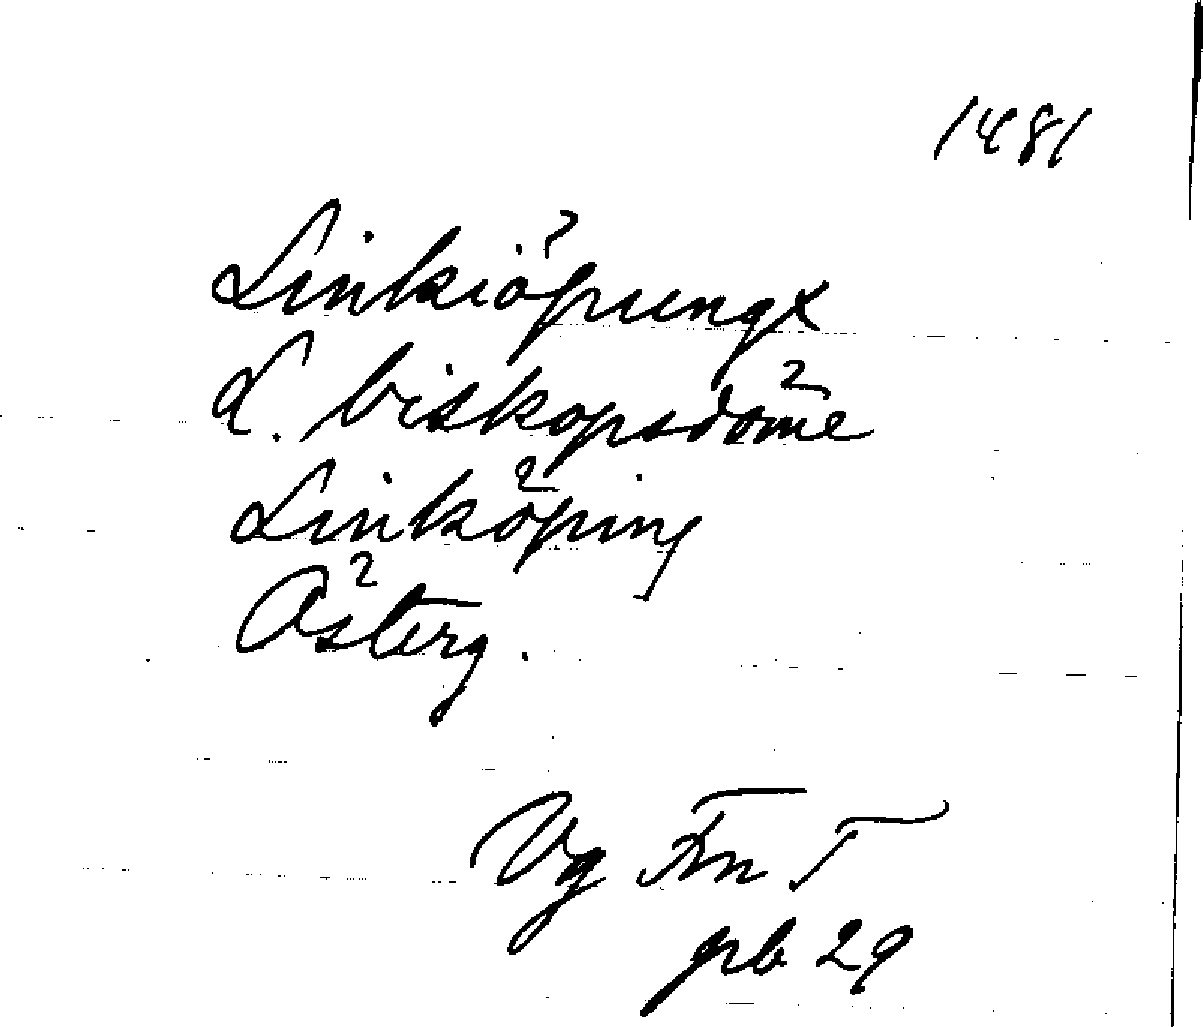 1481
Linkiöpungx
L. biskopsdöme
Linköping
Österg.
Vg Fm T
pb 29